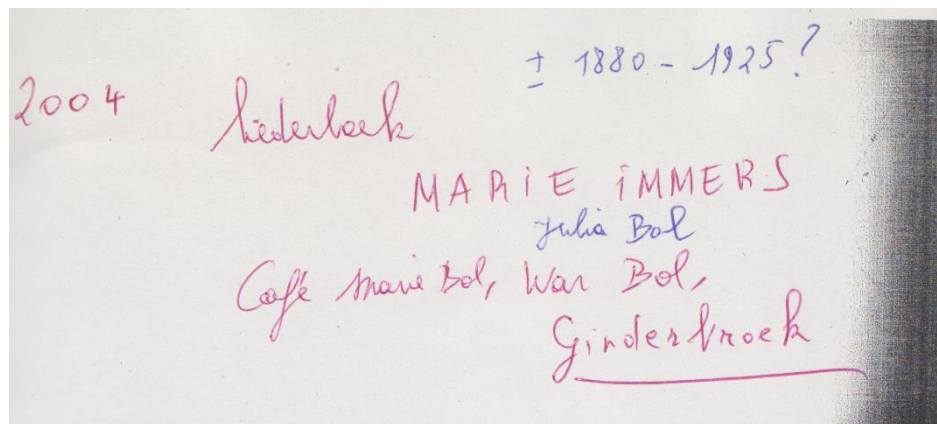 ± 1880 - 1925?
2004 Liederboek
MARIE IMMERS
Julia Bol
Café Marie Bol, War Bol,
Ginderbroek